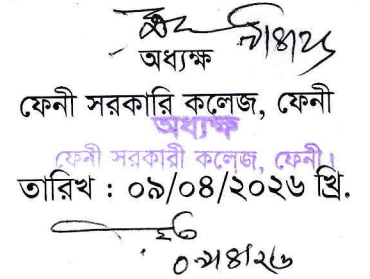 অধ্যক্ষ
ফেনী সরকারি কলেজ, ফেনী
অধ্যক্ষ
ফেনী সরকারী কলেজ, ফেনী।
তারিখ : ০৯/০৪/২০২৬ খ্রি.